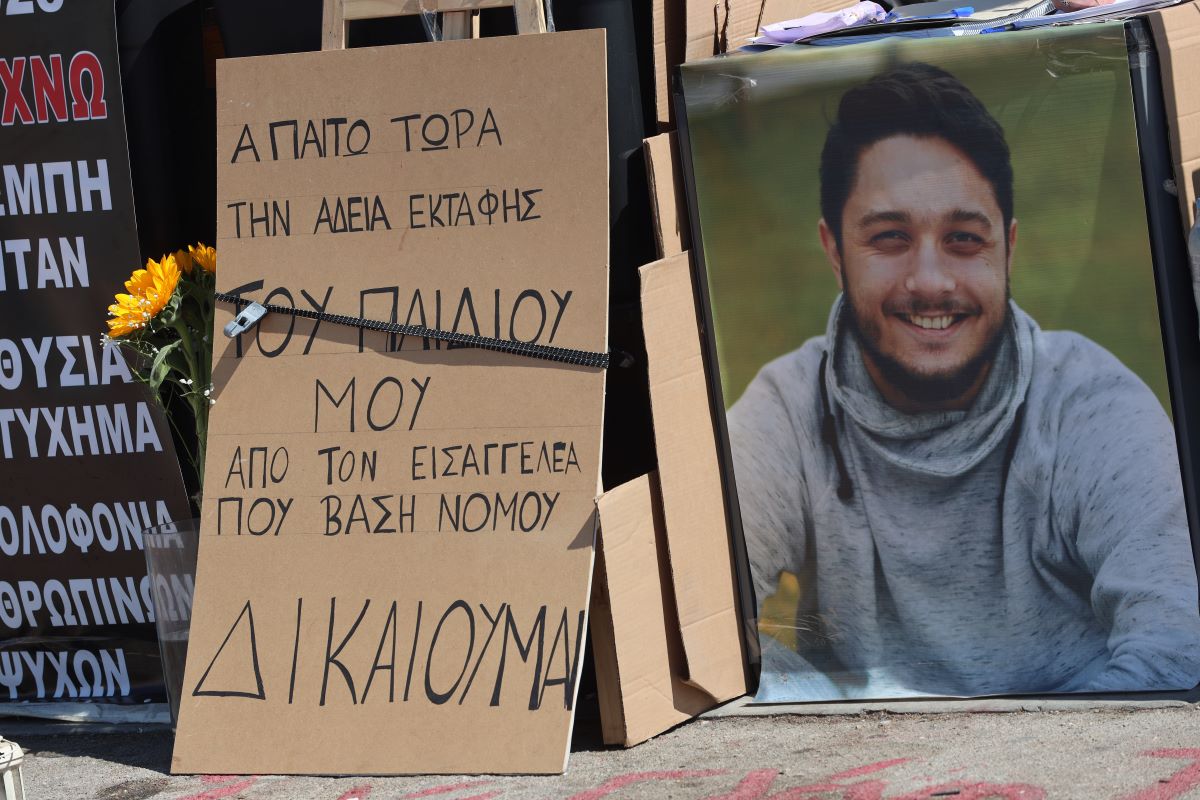 ΧΝΩ
ΜΠΗ
ΤΑΝ
ΘΥΣΙΑ
ΤΥΧΗΜΑ
ΟΛΟΦΟΝΙΑ
ΘΡΩΠΙΝΩ
ΨΥΧΩΝ
ΑΠΑΙΤΩ ΤΩΡΑ
ΤΗΝ ΑΔΕΙΑ ΕΚΤΑΦΗΣ
ΤΟΥ ΠΑΙΔΙΟΥ
ΜΟΥ
ΑΠΟ ΤΟΝ ΕΙΣΑΓΓΕΛΕΑ
ΠΟΥ ΒΑΣΗ ΝΟΜΟΥ
ΔΙΚΑΙΟΥΜΑΙ